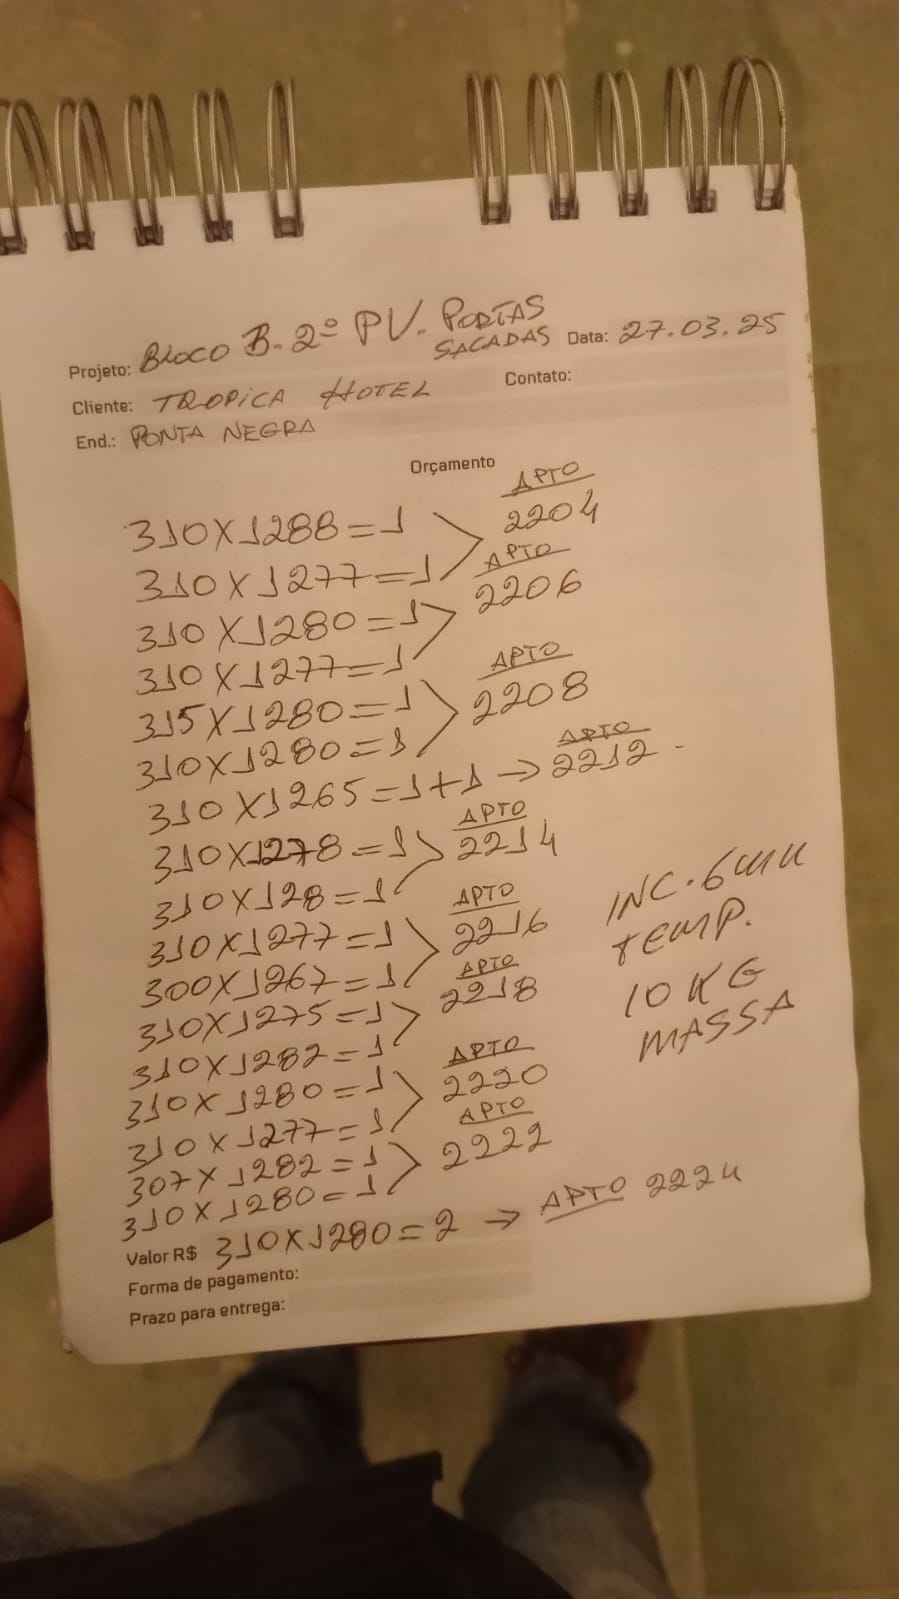 Projeto: BLOCO B. 2º PV. PORTAS SACADAS Data: 27.03.25
Cliente: TROPICA HOTEL Contato:
End.: PONTA NEGRA
Orçamento
310X1288=1 APTO 2204
310X1277=1
310X1280=1 APTO 2206
310X1277=1
315X1280=1 APTO 2208
310X1280=1
310X1265=1+1 → APTO 2212
310X1278=1 APTO 2214
310X128=1
310X1277=1 APTO 2216
300X1267=1
310X1275=1 APTO 2218
310X1282=1
310X1280=1 APTO 2220
310X1277=1
307X1282=1 APTO 2222
310X1280=1
Valor R$ 310X1280=2 → APTO 2224
INC. 6mm
TEMP.
10 KG
MASSA
Forma de pagamento:
Prazo para entrega: